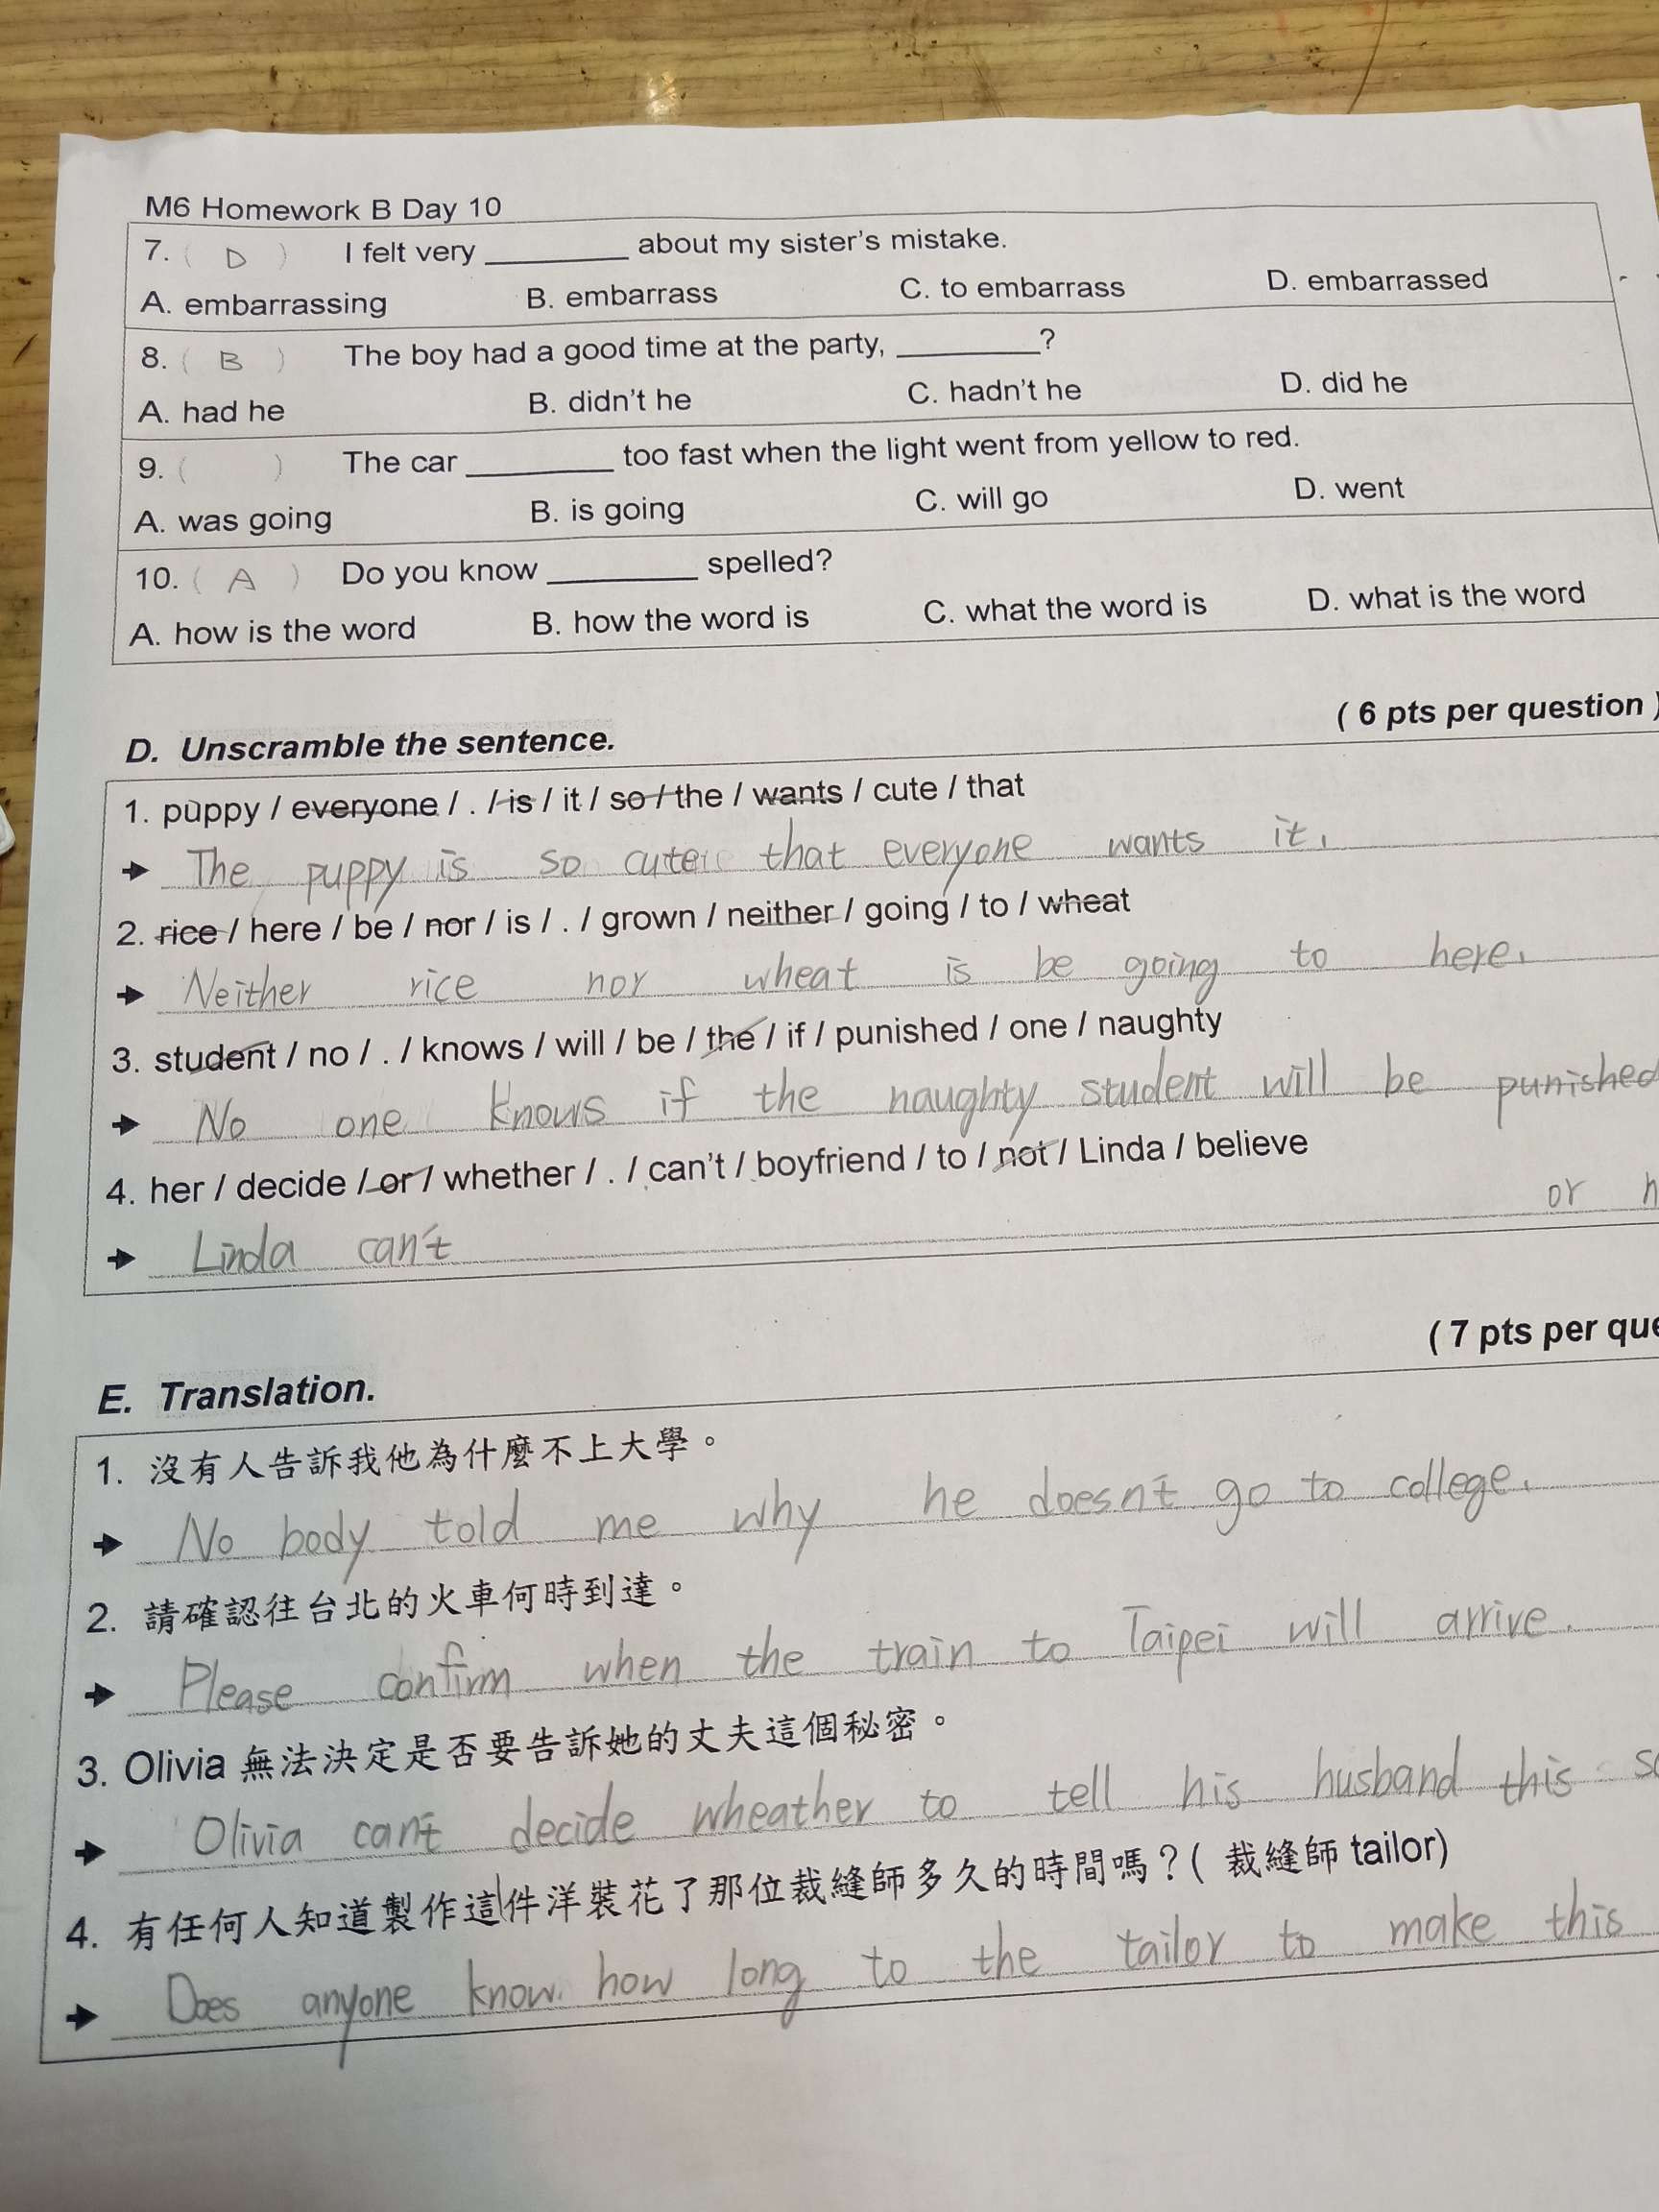 M6 Homework B Day 10
7. ( D ) I felt very ________ about my sister's mistake.
A. embarrassing B. embarrass C. to embarrass D. embarrassed
8. ( B ) The boy had a good time at the party, ________?
A. had he B. didn't he C. hadn't he D. did he
9. ( ) The car ________ too fast when the light went from yellow to red.
A. was going B. is going C. will go D. went
10. ( A ) Do you know ________ spelled?
A. how is the word B. how the word is C. what the word is D. what is the word
D. Unscramble the sentence. ( 6 pts per question )
1. puppy / everyone / . / is / it / so / the / wants / cute / that
The puppy is so cute that everyone wants it.
2. rice / here / be / nor / is / . / grown / neither / going / to / wheat
Neither rice nor wheat is be going to here.
3. student / no / . / knows / will / be / the / if / punished / one / naughty
No one knows if the naughty student will be punished
4. her / decide / or / whether / . / can't / boyfriend / to / not / Linda / believe
or
Linda can't
E. Translation. ( 7 pts per
1. 沒有人告訴我他為什麼不上大學。
No body told me why he doesn't go to college.
2. 請確認往台北的火車何時到達。
Please confirm when the train to Taipei will arrive.
3. Olivia 無法決定是否要告訴她的丈夫這個秘密。
Olivia can't decide wheather to tell his husband this
4. 有任何人知道製作這件洋裝花了那位裁縫師多久的時間嗎？( 裁縫師 tailor)
Does anyone know how long to the tailor to make this